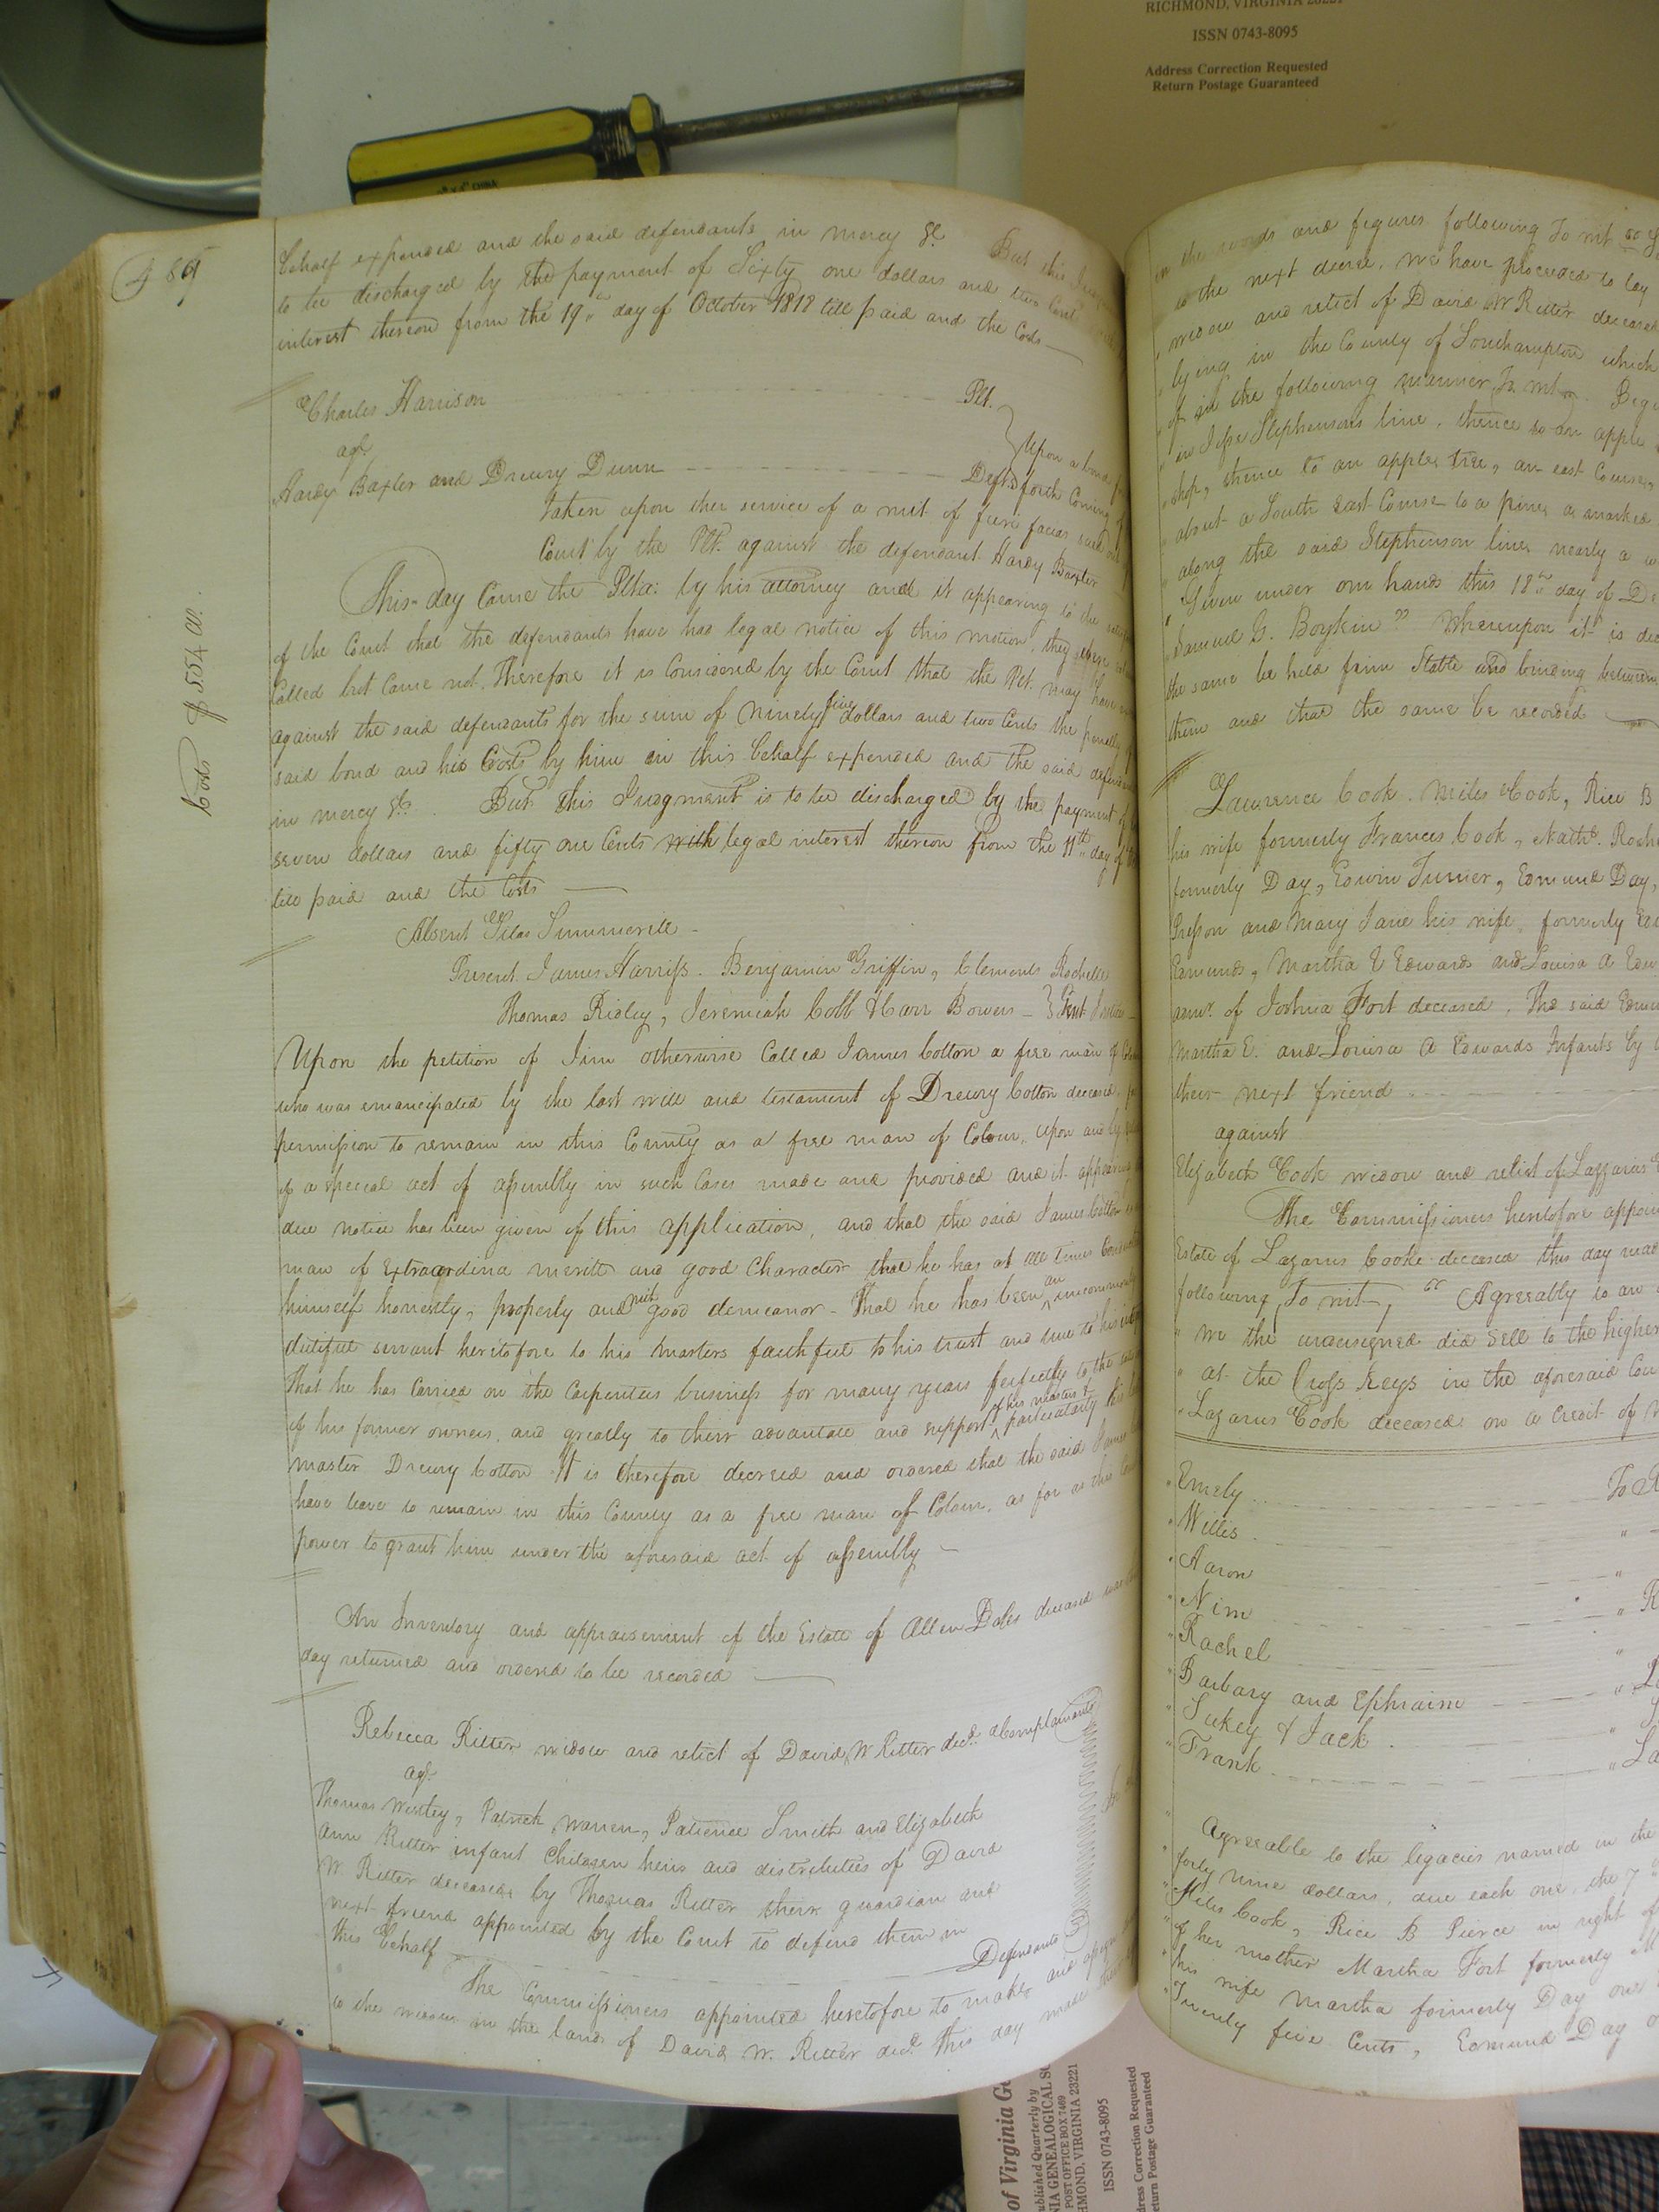 RICHMOND, VIRGINIA 23221
ISSN 0743-8095
Address Correction Requested
Return Postage Guaranteed
489
behalf expended and the said defendants in mercy &c. But this
to be discharged by the payment of Sixty one dollars and two Cents
interest thereon from the 19th day of October 1818 till paid and the Costs
Charles Harrison Plt.
agt
Hardy Baxter and Drewry Dunn Defts
Upon a bond
forth Coming
taken upon the service of a writ of fieri facias
Court by the Plt. against the defendant Hardy Baxter
This day Came the Pltn: by his attorney and it appearing to the
of the Court that the defendants have had legal notice of this motion, they were
Called but Came not. Therefore it is Considered by the Court that the Plt. may have
against the said defendants for the sum of Ninety five dollars and two Cents the penalty
said bond and his Costs by him in this behalf expended and the said
in mercy &c. But this Judgment is to be discharged by the payment of
seven dollars and fifty one Cents with legal interest thereon from the 11th day of
till paid and the Costs
Costs $ 5.54 Ct.
Absent Silas Summerell
Present James Harriss. Benjamin Griffin, Clements Rochelle
Thomas Ridley, Jeremiah Cobb & Carr Bowers Gent
Upon the petition of Jim otherwise Called James Cotton a free man of
who was emancipated by the last will and testament of Drewry Cotton deceased
permission to remain in this County as a free man of Colour, upon and by
of a special act of assembly in such Cases made and provided and it appearing
due notice has been given of this application, and that the said James Cotton
man of Extraordina meritt and good Character that he has at all times
himself honestly, properly and with good demeanor - That he has been an uncommonly
dutiful servant heretofore to his Masters faithful to his trust and true to his
That he has Carried on the Carpenters business for many years perfectly to the
of his former owners, and greatly to their advantage and support of his master & particularly his
master Drewry Cotton It is therefore decreed and ordered that the said James
have leave to remain in this County as a free man of Colour, as far as this
power to grant him under the aforesaid act of assembly
An Inventory and appraisement of the Estate of Allen Doles deceased was
day returned and ordered to be recorded
Rebecca Ritter widow and relict of David W Ritter decd. a Complainant
agt
Thomas Westley, Patrick Warren, Patience Smith and Elizabeth
Ann Ritter infant Children heirs and distributees of David
W. Ritter deceased by Thomas Ritter their guardian and
next friend appointed by the Court to defend them in
this behalf Defendants
The Commissioners appointed heretofore to make and assign
to the widow in the lands of David W. Ritter decd. this day made
in the words and figures following To wit
to the next decree, we have proceeded to lay
widow and relict of David W Ritter deceased
lying in the County of Southampton which
of in the following manner To wit,
in Jesse Stephensons line, thence to an apple
shop, thence to an apple tree, an east Course,
about a South East Course to a pine, a marked
along the said Stephenson line, nearly a
Given under our hands this 18th day of
Samuel G. Boykin" Whereupon it is
the same be held firm Stable and binding between
them and that the same be recorded
Laurence Cook, Miles Cook, Rice B
his wife formerly Frances Cook, Nathl.
formerly Day, Edwin Turner, Edmund Day,
and Mary Jane his wife, formerly
Edmunds, Martha E Edwards and Louisa A
admr. of Joshua Fort deceased, The said
Martha E. and Louisa A Edwards Infants by
their next friend
against
Elizabeth Cook widow and relict of Lazarus
The Commissioners heretofore
Estate of Lazarus Cooke deceased this day
following, To wit, "Agreeably to an
we the undersigned did sell to the
at the Cross Keys in the aforesaid
Lazarus Cook deceased on a Credit of
Emely To
Willis
Aaron
Nim
Rachel
Barbary and Ephraim
Sukey & Jack
Frank
Agreeable to the legacies named in the
forty nine dollars, due each one, the 7
Miles Cook, Rice B Pierce in right of
of her mother Martha Fort formerly
his wife Martha formerly Day one
Twenty five Cents, Edmund Day
of Virginia
Published Quarterly by
GENEALOGICAL
POST OFFICE BOX 7469
RICHMOND, VIRGINIA 23221
ISSN 0743-8095
Address Correction Requested
Return Postage Guaranteed